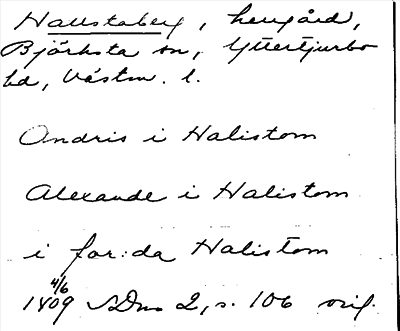 Hallstaberg, herrgård,
Björksta sn, Yttertjurbo
hd, Västm. l.
Ondris i Halistom
Alexande i Halistom
i for:da Halistom
4/6
1409 SDns 2, s. 106 orig.